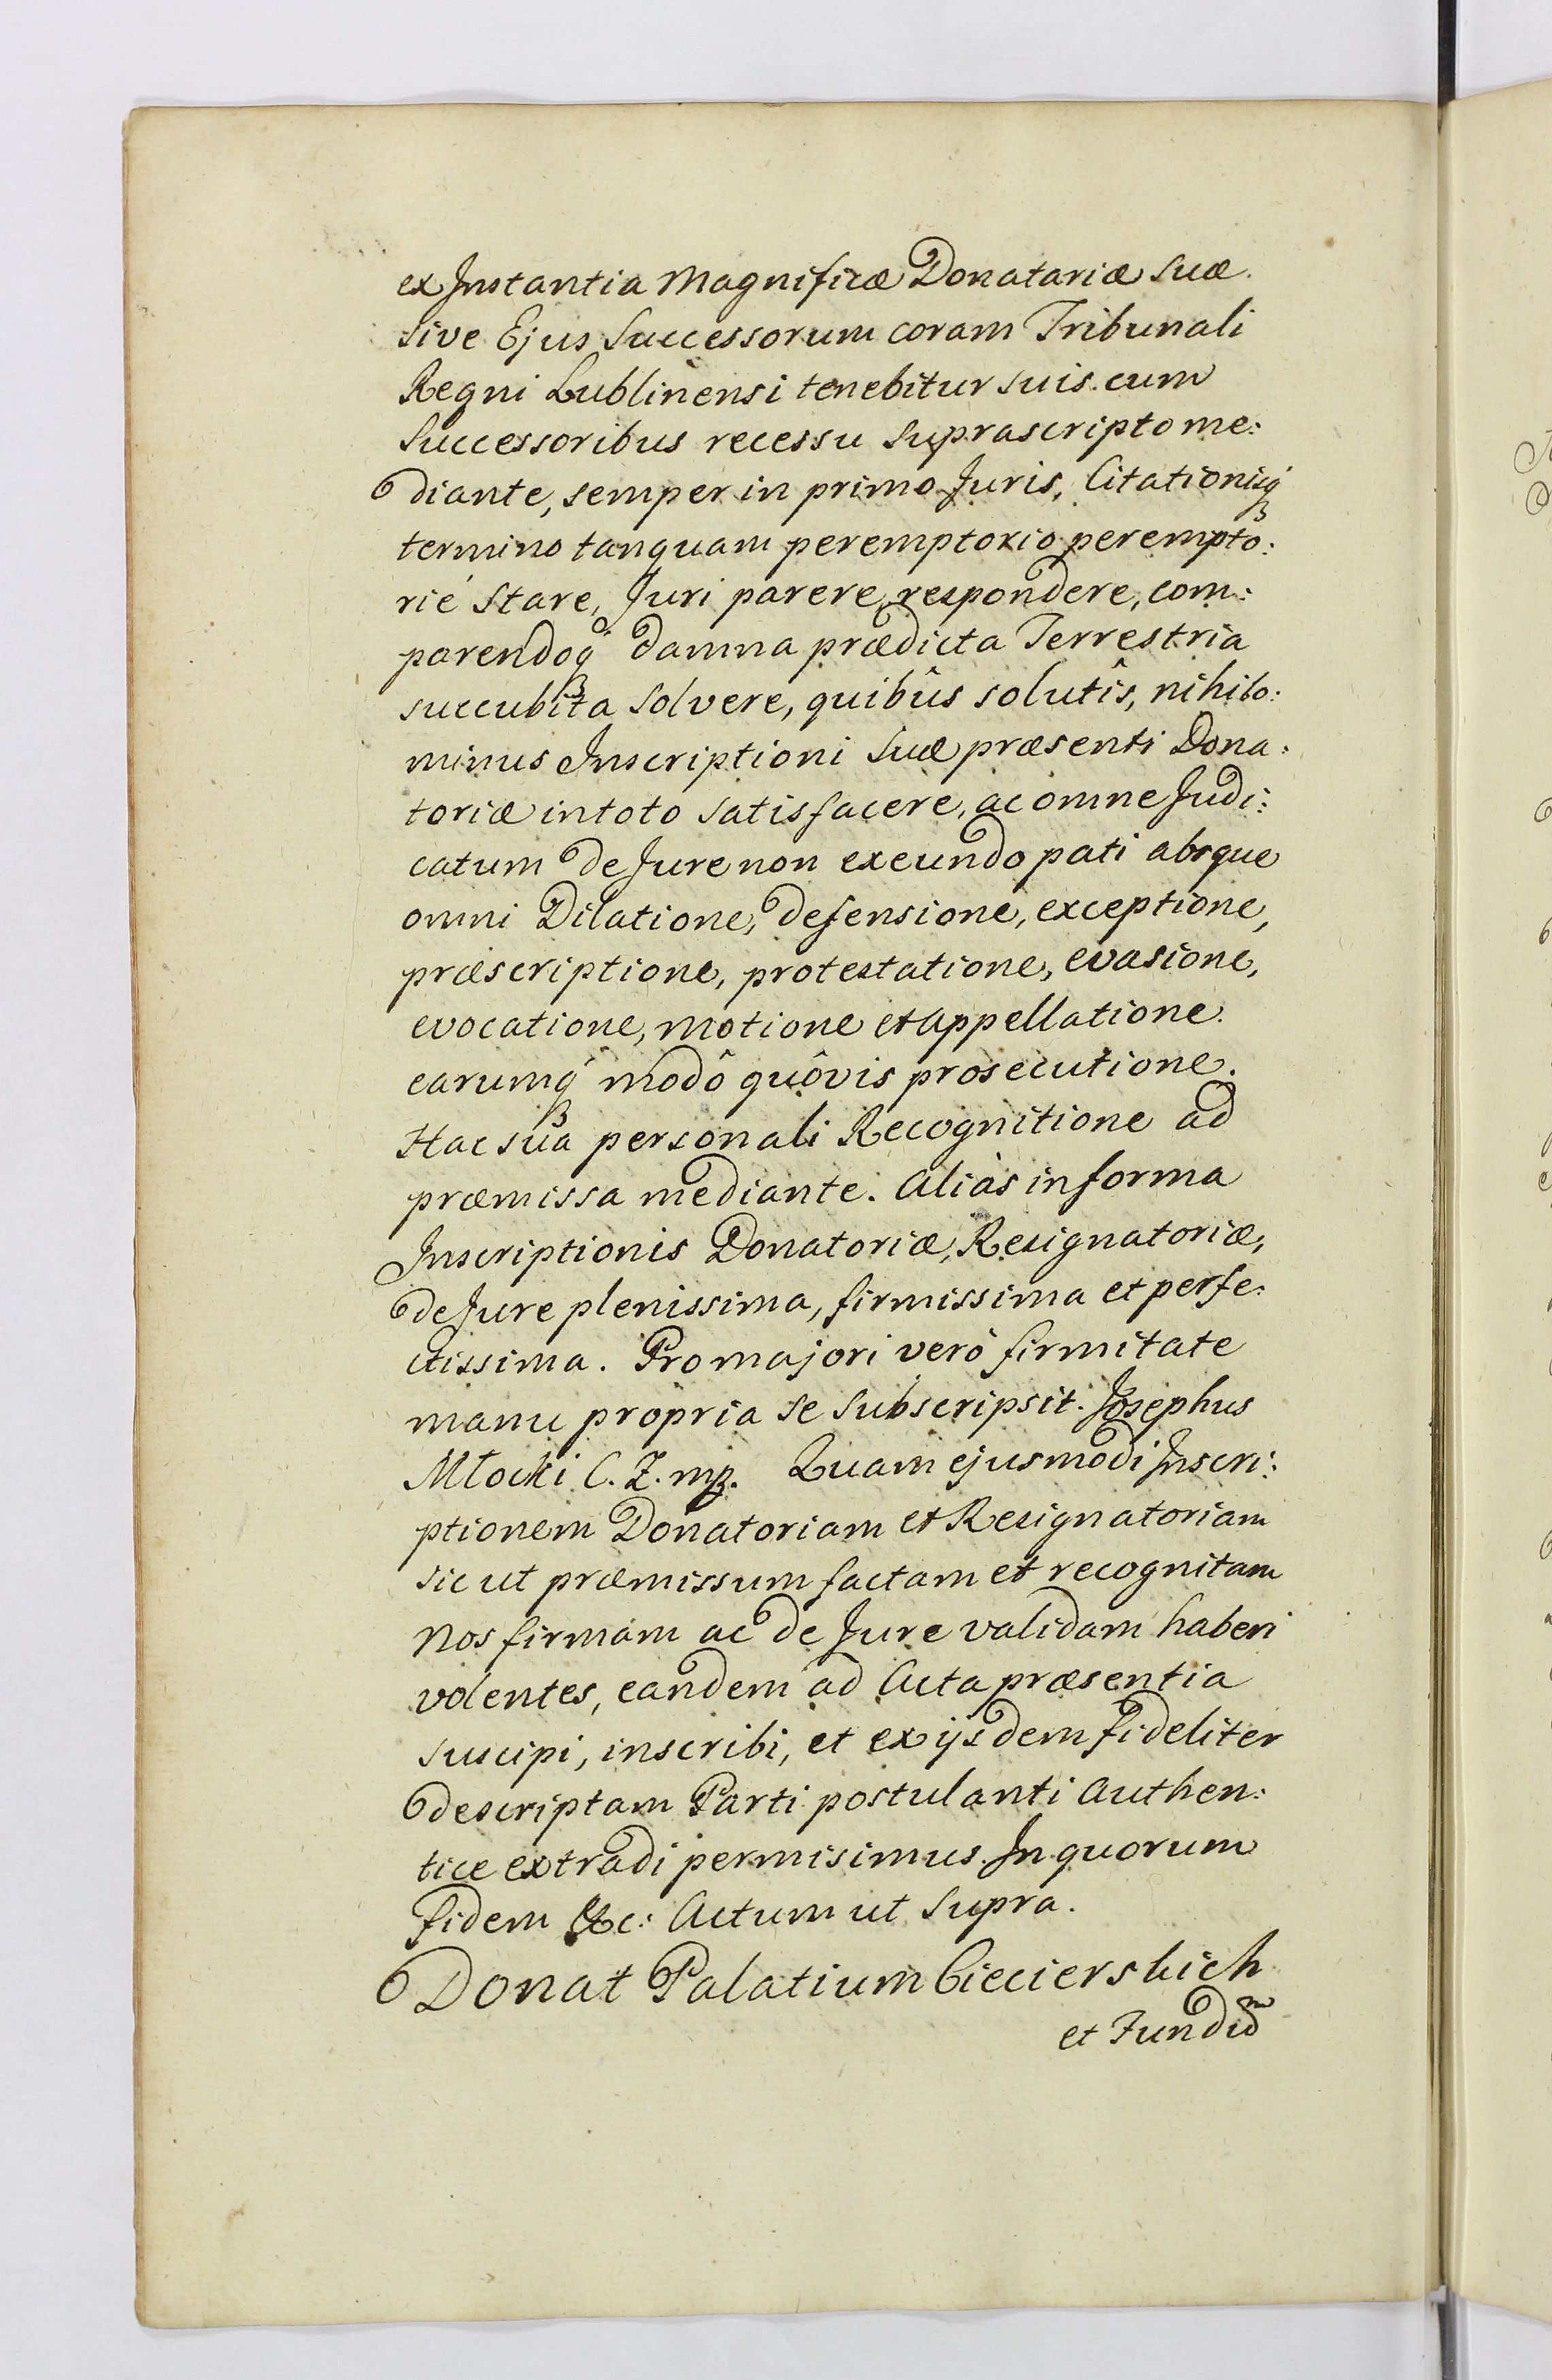 ex Instantia Magnificæ Donatariæ Suæ.
sive Ejus Successorum coram Tribunali
Regni Lublinensi tenebitur suis cum
Successoribus recessu suprascripto me:
diante, semper in primo Juris, Citationisq́
termino tanquam peremptorio perempto:
rié stare, Juri parere, respondere, com:
parendoq́ damna prædicta Terrestria
succubita solvere, quibûs solutîs, nihilo:
minus Inscriptioni Suæ præsenti Dona:
toriæ in toto satisfacere, ac omne Judi:
catum de Jure non exeundo pati absque
omni Dilatione, defensione, exceptione,
præscriptione, protestatione, evasione,
evocatione, motione et appellatione.
earumq́ modô quôvis prosecutione.
Hac suâ personali Recognitione ad
præmissa mediante. Aliàs in forma
Inscriptionis Donatoriæ, Resignatoriæ,
de Jure plenissima, firmissima et perfe:
ctissima. Pro majori verò firmitate
manu propria se subscripsit. Josephus
Młocki C. Z. mp. Quam ejusmodi Inscri:
ptionem Donatoriam et Resignatoriam
sic ut præmissum factam et recognitam
Nos firmam ac de Jure validam haberi
volentes, eandem ad Acta præsentia
suscipi, inscribi, et ex ijsdem fideliter
descriptam Parti postulanti Authen:
tice extradi permisimus. In quorum
fidem &c: Actum ut supra.
Donat Palatium Cieciershich
et Fundũ